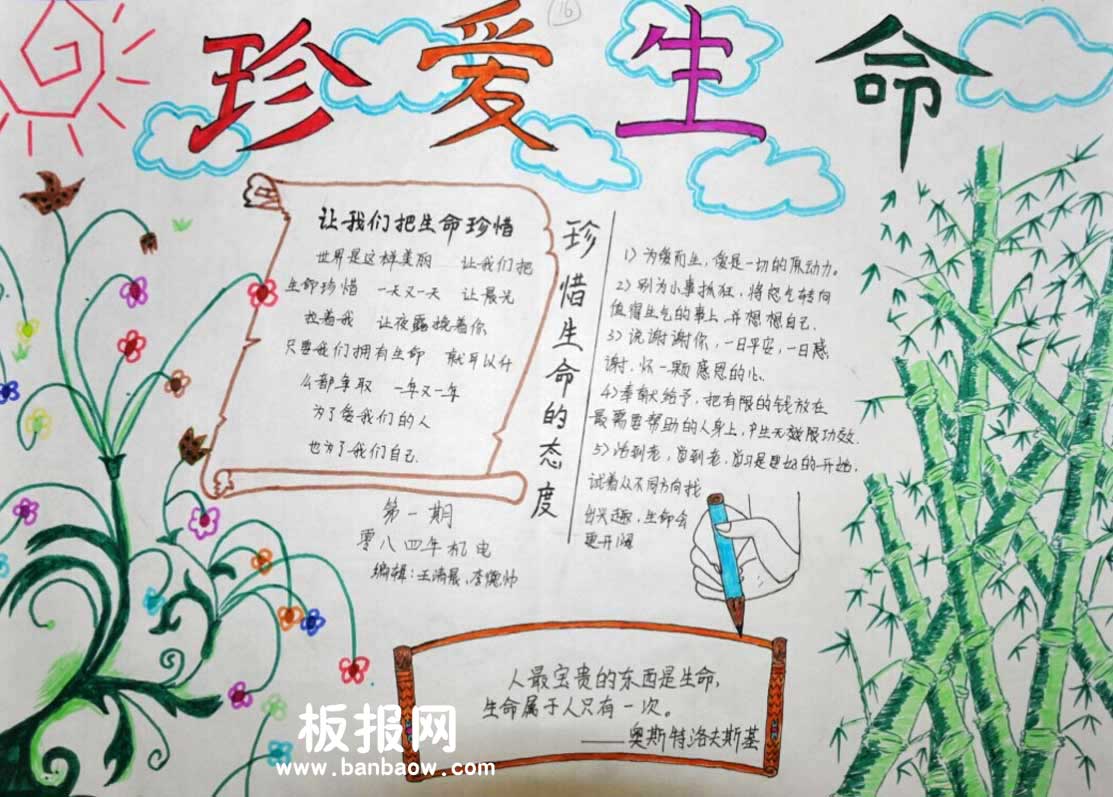 16
珍爱生命
让我们把生命珍惜
世界是这样美丽 让我们把
生命珍惜 一天又一天 让晨光
拉着我 让夜露挽着你
只要我们拥有生命 就可以什
么都争取 一年又一年
为了爱我们的人
也为了我们自己
第一期
零八四年机电
编辑:王
珍惜生命的态度
1)为爱而生,爱是一切的原动力。
2)别为小事抓狂,将怒气转向
值得生气的事上,并想想自己.
3)说谢谢你,一日平安,一日感
谢.怀一颗感恩的心.
4)奉献给予,把有限的钱放在
最需要帮助的人身上,产生无效限功效.
5)活到老,习到老,习是更好的开始.
试着从不同方向找
出兴趣,生命会
更开阔
人最宝贵的东西是生命,
生命属于人只有一次。
——奥斯特洛夫斯基
板报网
www.banbaow.com